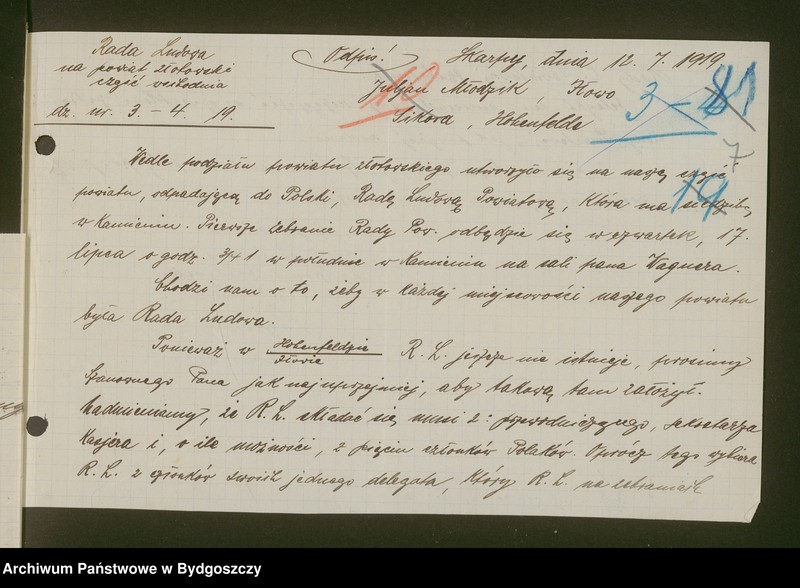 Rada Ludowa
na powiat złotowski
część wschodnia
dz. nr. 3 – 4. 19.
Odpis!
Skarpy, dnia 12. 7. 1919
Juljan Młodzik, Iłowo
Sikora, Hohenfelde
10
3 – 4
19
7
Wedle podziału powiatu złotowskiego utworzyło się na naszą część
powiatu, odpadającą do Polski, Radę Ludową Powiatową, która ma siedzibę
w Kamieniu. Pierwsze zebranie Rady Pow. odbędzie się w czwartek, 17.
lipca o godz. 3/4 1 w południe w Kamieniu na sali pana Wagnera.
Chodzi nam o to, żeby w każdej miejscowości naszego powiatu
była Rada Ludowa.
Ponieważ w Hohenfeldzie R. L. jeszcze nie istnieje, prosimy
Szanownego Pana jak najuprzejmiej, aby takową tam założył.
Nadmieniamy, że R. L. składać się musi z: przewodniczącego, sekretarza
kasjera i, o ile możności, z pięciu członków Polaków. Oprócz tego wybiera
R. L. z członków swoich jednego delegata, który R. L. na zebraniach
Archiwum Państwowe w Bydgoszczy